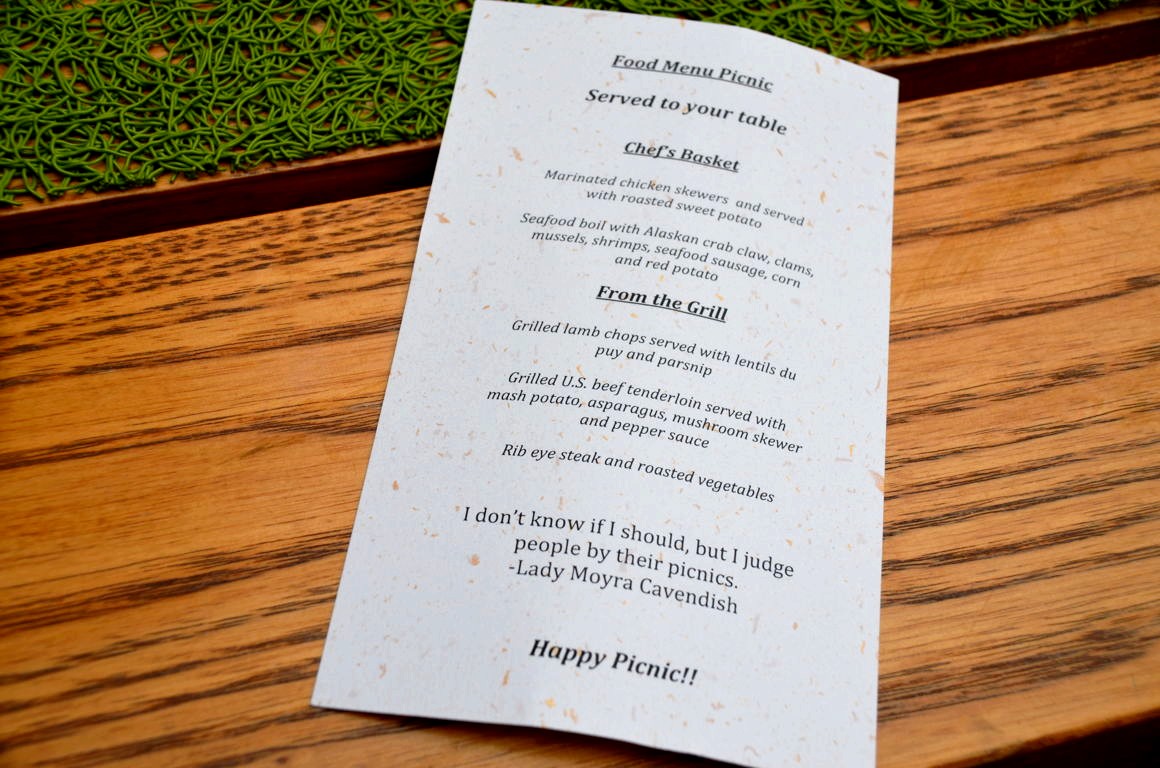 Food Menu Picnic
Served to your table
Chef's Basket
Marinated chicken skewers and served
with roasted sweet potato
Seafood boil with Alaskan crab claw, clams,
mussels, shrimps, seafood sausage, corn
and red potato
From the Grill
Grilled lamb chops served with lentils du
puy and parsnip
Grilled U.S. beef tenderloin served with
mash potato, asparagus, mushroom skewer
and pepper sauce
Rib eye steak and roasted vegetables
I don't know if I should, but I judge
people by their picnics.
-Lady Moyra Cavendish
Happy Picnic!!